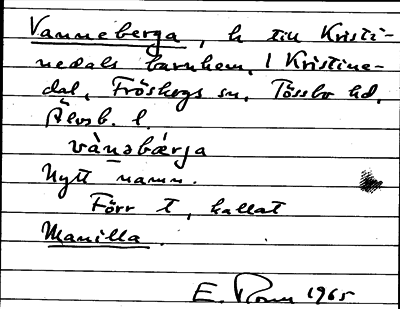 Vanneberga, h till Kristi-
nedals barnhem, 1 Kristine-
dal, Fröskogs sn, Tössbo hd,
Älvsb. l.
vànəbærja
Nytt namn.
Förr t, kallat
Manilla.
E. 1965